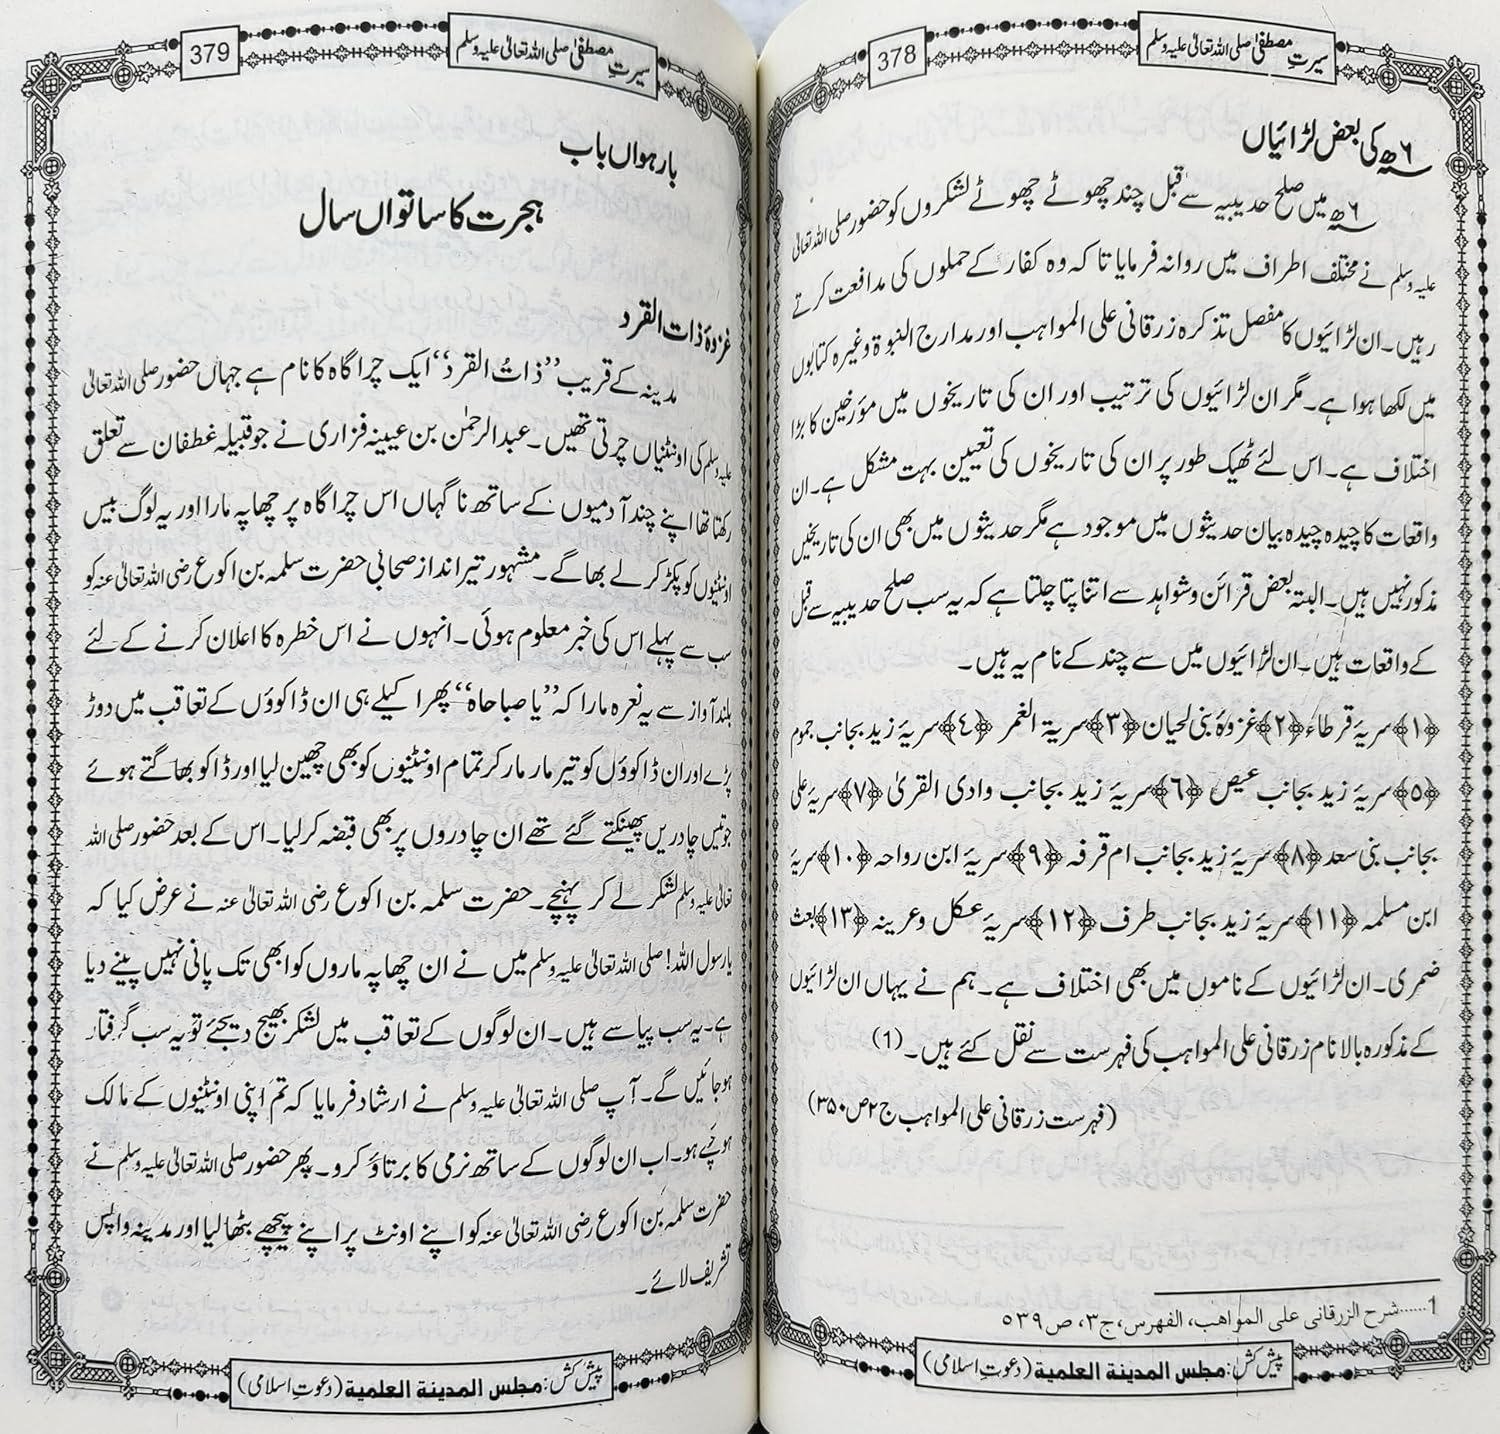 سیرتِ مصطفیٰ صلی اللہ تعالیٰ علیہ وسلم
378
۶ھ کی بعض لڑائیاں
۶ھ میں صلح حدیبیہ سے قبل چند چھوٹے چھوٹے لشکروں کو حضور صلی اللہ تعالیٰ
علیہ وسلم نے مختلف اطراف میں روانہ فرمایا تا کہ وہ کفار کے حملوں کی مدافعت کرتے
رہیں۔ ان لڑائیوں کا مفصل تذکرہ زرقانی علی المواہب اور مدارج النبوۃ وغیرہ کتابوں
میں لکھا ہوا ہے۔ مگر ان لڑائیوں کی ترتیب اور ان کی تاریخوں میں مؤرخین کا بڑا
اختلاف ہے۔ اس لئے ٹھیک طور پر ان کی تاریخوں کی تعیین بہت مشکل ہے۔ ان
واقعات کا چیدہ چیدہ بیان حدیثوں میں موجود ہے مگر حدیثوں میں بھی ان کی تاریخیں
مذکور نہیں ہیں۔ البتہ بعض قرائن و شواہد سے اتنا پتا چلتا ہے کہ یہ سب صلح حدیبیہ سے قبل
کے واقعات ہیں۔ ان لڑائیوں میں سے چند کے نام یہ ہیں۔
﴿۱﴾سریۂ قرطاء ﴿۲﴾غزوۂ بنی لحیان ﴿۳﴾سریۃ الغمر ﴿۴﴾سریۂ زید بجانب جموم
﴿۵﴾سریۂ زید بجانب عیص ﴿۶﴾سریۂ زید بجانب وادی القریٰ ﴿۷﴾سریۂ علی
بجانب بنی سعد ﴿۸﴾سریۂ زید بجانب ام قرفہ ﴿۹﴾سریۂ ابن رواحہ ﴿۱۰﴾سریۂ
ابن مسلمہ ﴿۱۱﴾سریۂ زید بجانب طرف ﴿۱۲﴾سریۂ عکل و عرینہ ﴿۱۳﴾بعث
ضمری۔ ان لڑائیوں کے ناموں میں بھی اختلاف ہے۔ ہم نے یہاں ان لڑائیوں
کے مذکورہ بالا نام زرقانی علی المواہب کی فہرست سے نقل کئے ہیں۔ (1)
(فہرست زرقانی علی المواہب ج۲ص۳۵۰)
1......شرح الزرقانی علی المواھب، الفھرس، ج۳، ص۵۳۹
پیش کش: مجلس المدینۃ العلمیۃ (دعوتِ اسلامی)
سیرتِ مصطفیٰ صلی اللہ تعالیٰ علیہ وسلم
379
بارہواں باب
ہجرت کا ساتواں سال
غزوۂ ذات القرد
مدینہ کے قریب ”ذاتُ القرد“ ایک چراگاہ کا نام ہے جہاں حضور صلی اللہ تعالیٰ
علیہ وسلم کی اونٹنیاں چرتی تھیں۔ عبدالرحمٰن بن عیینہ فزاری نے جو قبیلہ غطفان سے تعلق
رکھتا تھا اپنے چند آدمیوں کے ساتھ ناگہاں اس چراگاہ پر چھاپہ مارا اور یہ لوگ بیس
اونٹنیوں کو پکڑ کر لے بھاگے۔ مشہور تیرانداز صحابی حضرت سلمہ بن اکوع رضی اللہ تعالیٰ عنہ کو
سب سے پہلے اس کی خبر معلوم ہوئی۔ انہوں نے اس خطرہ کا اعلان کرنے کے لئے
بلند آواز سے یہ نعرہ مارا کہ ”یا صباحاہ“ پھر اکیلے ہی ان ڈاکوؤں کے تعاقب میں دوڑ
پڑے اور ان ڈاکوؤں کو تیر مار مار کر تمام اونٹنیوں کو بھی چھین لیا اور ڈاکو بھاگتے ہوئے
جو تیس چادریں پھینکتے گئے تھے ان چادروں پر بھی قبضہ کرلیا۔ اس کے بعد حضور صلی اللہ
تعالیٰ علیہ وسلم لشکر لے کر پہنچے۔ حضرت سلمہ بن اکوع رضی اللہ تعالیٰ عنہ نے عرض کیا کہ
یارسول اللہ! صلی اللہ تعالیٰ علیہ وسلم میں نے ان چھاپہ ماروں کو ابھی تک پانی نہیں پینے دیا
ہے۔ یہ سب پیاسے ہیں۔ ان لوگوں کے تعاقب میں لشکر بھیج دیجئے تو یہ سب گرفتار
ہو جائیں گے۔ آپ صلی اللہ تعالیٰ علیہ وسلم نے ارشاد فرمایا کہ تم اپنی اونٹنیوں کے مالک
ہو چکے ہو۔ اب ان لوگوں کے ساتھ نرمی کا برتاؤ کرو۔ پھر حضور صلی اللہ تعالیٰ علیہ وسلم نے
حضرت سلمہ بن اکوع رضی اللہ تعالیٰ عنہ کو اپنے اونٹ پر اپنے پیچھے بٹھا لیا اور مدینہ واپس
تشریف لائے۔
پیش کش: مجلس المدینۃ العلمیۃ (دعوتِ اسلامی)